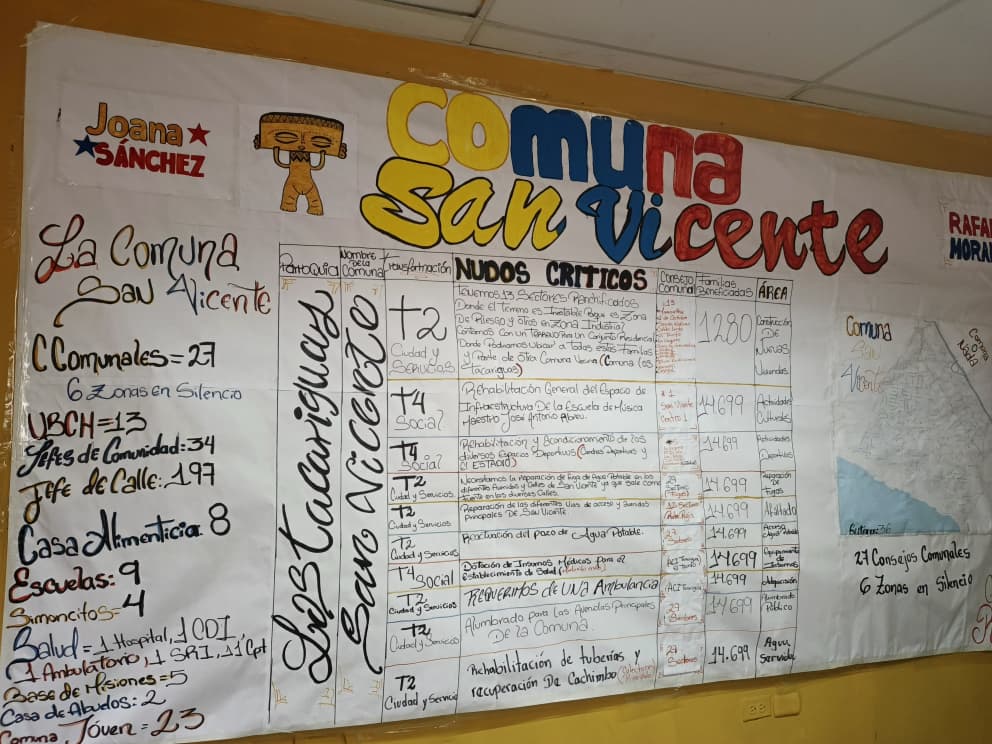 Joana
SÁNCHEZ
COMUNA
San Vicente
RAFA
MORA
La Comuna
San Vicente
C Comunales = 27
6 Zonas en Silencio
UBCH = 13
Jefes de Comunidad: 34
Jefe de Calle: 197
Casa Alimenticia: 8
Escuelas: 9
Simoncitos = 4
Salud = 1 Hospital, 1 CDI,
1 Ambulatorio, 1 SRI, 11 Cpt
Base de Misiones = 5
Casa de Abuelos: 2
Comuna Jóven = 23
Parroquia
Nombre De La Comuna
Transformación
NUDOS CRITICOS
Consejo Comunal
Familias Beneficiadas
ÁREA
Las Tacariguas
San Vicente
T2
Ciudad y
Servicios
Tenemos 13 Sectores
Donde el Terreno es Inestable Porque es Zona
De Riesgo y otros en Zona Industrial
Contamos Con un Terreno Para Un Conjunto Residencial
Donde Podriamos Ubicar a Todas estas Familias
y Parte de otra Comuna Vecina (Comuna Los
Tacariguas)
13
1280
Construcción
De
Nuevas
Viviendas
T4
Social
Rehabilitación General del Espacio de
Infraestructura De la Escuela de Música
Maestro José Antonio Abreu.
San Vicente
Centro 1
14.699
Actividades
Culturales
T4
Social
Rehabilitación y Acondicionamiento de los
diversos Espacios Deportivos (Canchas Deportivas y
El ESTADIO)
14.699
Actividades
Deportivas
T2
Ciudad y Servicios
Necesitamos la Reparación de Fuga de Agua Potable en las
diferentes Avenidas y Calles de San Vicente ya que sale como
fuente en las diversas Calles.
29
Sectores
(Fugas)
14.699
Reparación
De
Fugas
T2
Ciudad y Servicios
Reparación de las diferentes Vías de acceso y Avenidas
Principales De San Vicente
14.699
Asfaltado
T2
Ciudad y Servicios
Reactivación del pozo de Agua Potable.
Sectores
14.699
Agua Potable
T4 Social
Dotación de Insumos Médicos Para el
Establecimiento de Salud
14.699
Insumos
T2
Ciudad y Servicios
REQUERIMOS DE UNA Ambulancia
14.699
Adquisición
T2
Ciudad y Servicios
Alumbrado Para las Avenidas Principales
De la Comuna.
Sectores
14.699
Alumbrado
Público
T2
Ciudad y Servicio
Rehabilitación de tuberías y
recuperación De Cachimbo
29
Sectores
14.699
Aguas
Servidas
Comuna
San
Vicente
27 Consejos Comunales
6 Zonas en Silencio